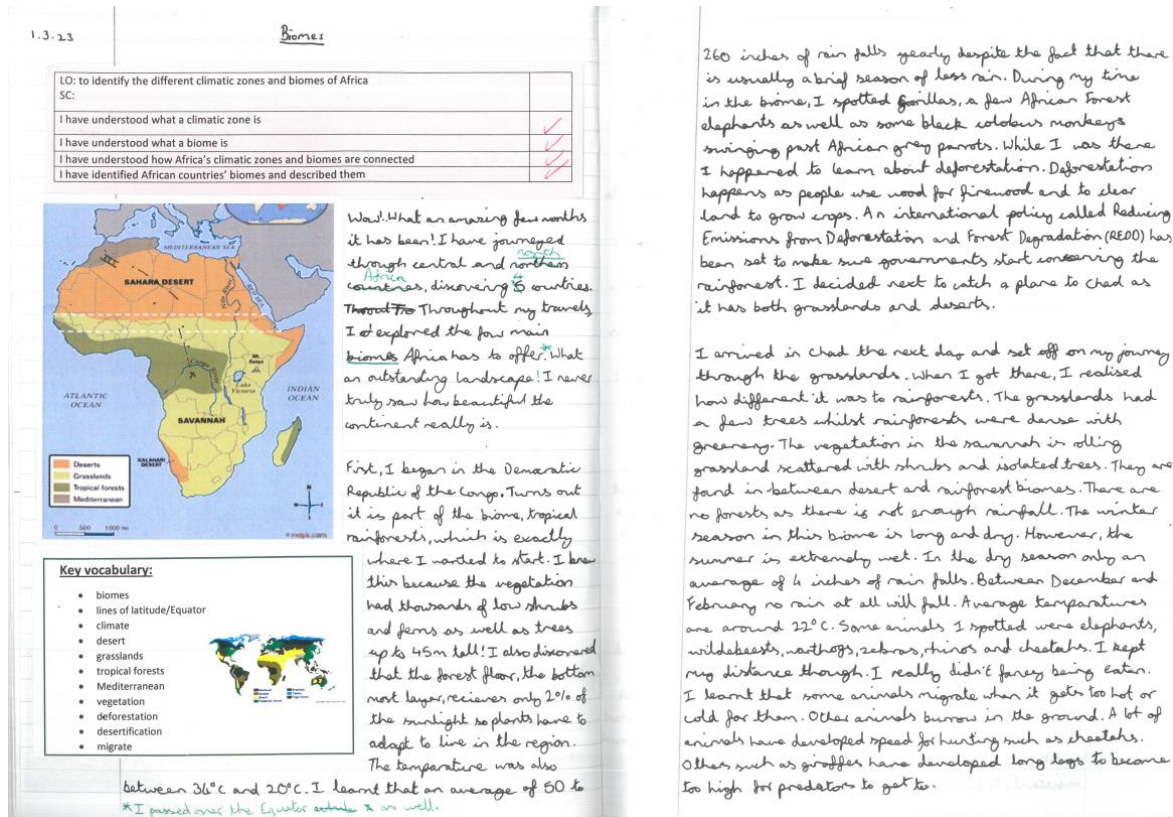 1.3.23
Biomes
LO: to identify the different climatic zones and biomes of Africa
SC:
I have understood what a climatic zone is
I have understood what a biome is
I have understood how Africa's climatic zones and biomes are connected
I have identified African countries' biomes and described them
MEDITERRANEAN SEA
SAHARA DESERT
Nile River
RED SEA
Congo River
Mt. Kenya
Lake Victoria
ATLANTIC OCEAN
INDIAN OCEAN
SAVANNAH
KALAHARI DESERT
Deserts
Grasslands
Tropical forests
Mediterranean
N
0 500 1000 mi
maps.com
Key vocabulary:
biomes
lines of latitude/Equator
climate
desert
grasslands
tropical forests
Mediterranean
vegetation
deforestation
desertification
migrate
Wow! What an amazing few months
it has been! I have journeyed
north
through central and northern
Africa
countries, discovering 5 countries.
4
Throughout my travels,
I explored the four main
biomes Africa has to offer.* What
an outstanding landscape! I never
truly saw how beautiful the
continent really is.
First, I began in the Democratic
Republic of the Congo. Turns out
it is part of the biome, tropical
rainforests, which is exactly
where I wanted to start. I knew
this because the vegetation
had thousands of low shrubs
and ferns as well as trees
up to 45m tall! I also discovered
that the forest floor, the bottom
most layer, recieves only 2% of
the sunlight so plants have to
adapt to live in the region.
The temperature was also
between 34°C and 20°C. I learnt that an average of 50 to
*I passed over the Equator as well.
260 inches of rain falls yearly despite the fact that there
is usually a brief season of less rain. During my time
in the biome, I spotted Gorillas, a few African Forest
elephants as well as some black colobus monkeys
swinging past African grey parrots. While I was there
I happened to learn about deforestation. Deforestation
happens as people use wood for firewood and to clear
land to grow crops. An international policy called Reducing
Emissions from Deforestation and Forest Degradation (REDD) has
been set to make sure governments start conserving the
rainforest. I decided next to catch a plane to Chad as
it has both grasslands and deserts.
I arrived in Chad the next day and set off on my journey
through the grasslands. When I got there, I realised
how different it was to rainforests. The grasslands had
a few trees whilst rainforests were dense with
greenery. The vegetation in the savannah is rolling
grassland scattered with shrubs and isolated trees. They are
found in between desert and rainforest biomes. There are
no forests as there is not enough rainfall. The winter
season in this biome is long and dry. However, the
summer is extremely wet. In the dry season only an
average of 4 inches of rain falls. Between December and
February no rain at all will fall. Average temparatures
are around 22°C. Some animals I spotted were elephants,
wildebeests, warthogs, zebras, rhinos and cheetahs. I kept
my distance though. I really didn't fancy being eaten.
I learnt that some animals migrate when it gets too hot or
cold for them. Other animals burrow in the ground. A lot of
animals have developed speed for hunting such as cheetahs.
Others such as giraffes have developed long legs to become
too high for predators to get to.